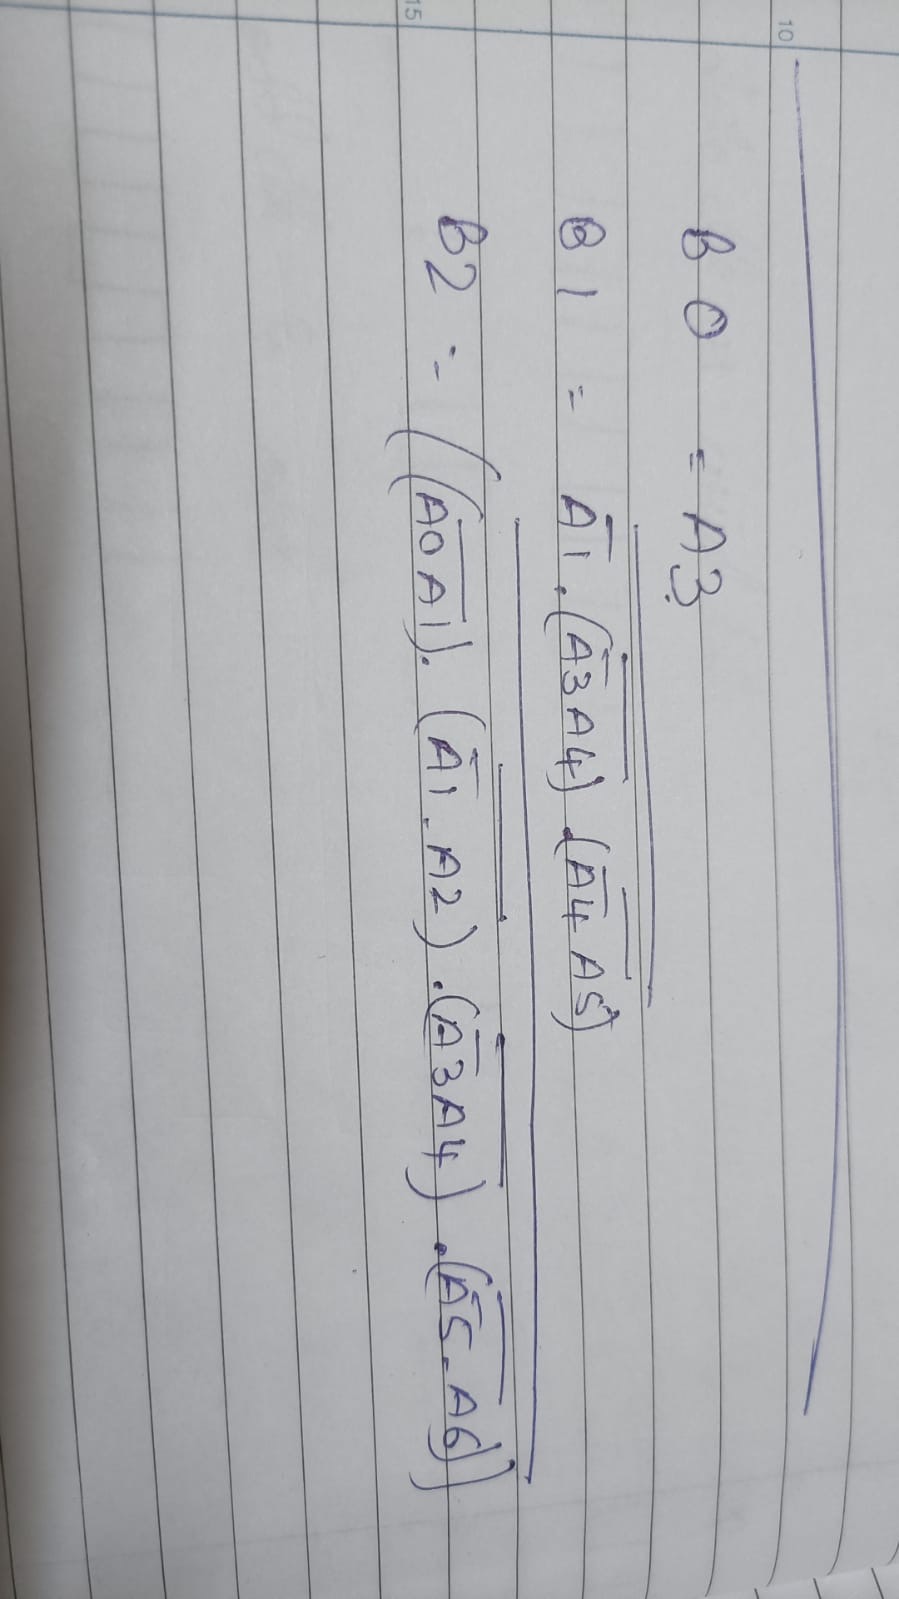 10
15
B0 = A3
B1 = \overline{\overline{A1}.\overline{(\overline{A3}A4)}.\overline{(\overline{A4}A5)}}
B2 = \overline{((\overline{A0A1}).\overline{(\overline{A1}.A2)}.\overline{(\overline{A3}A4)}.\overline{(\overline{A5}.A6)})}